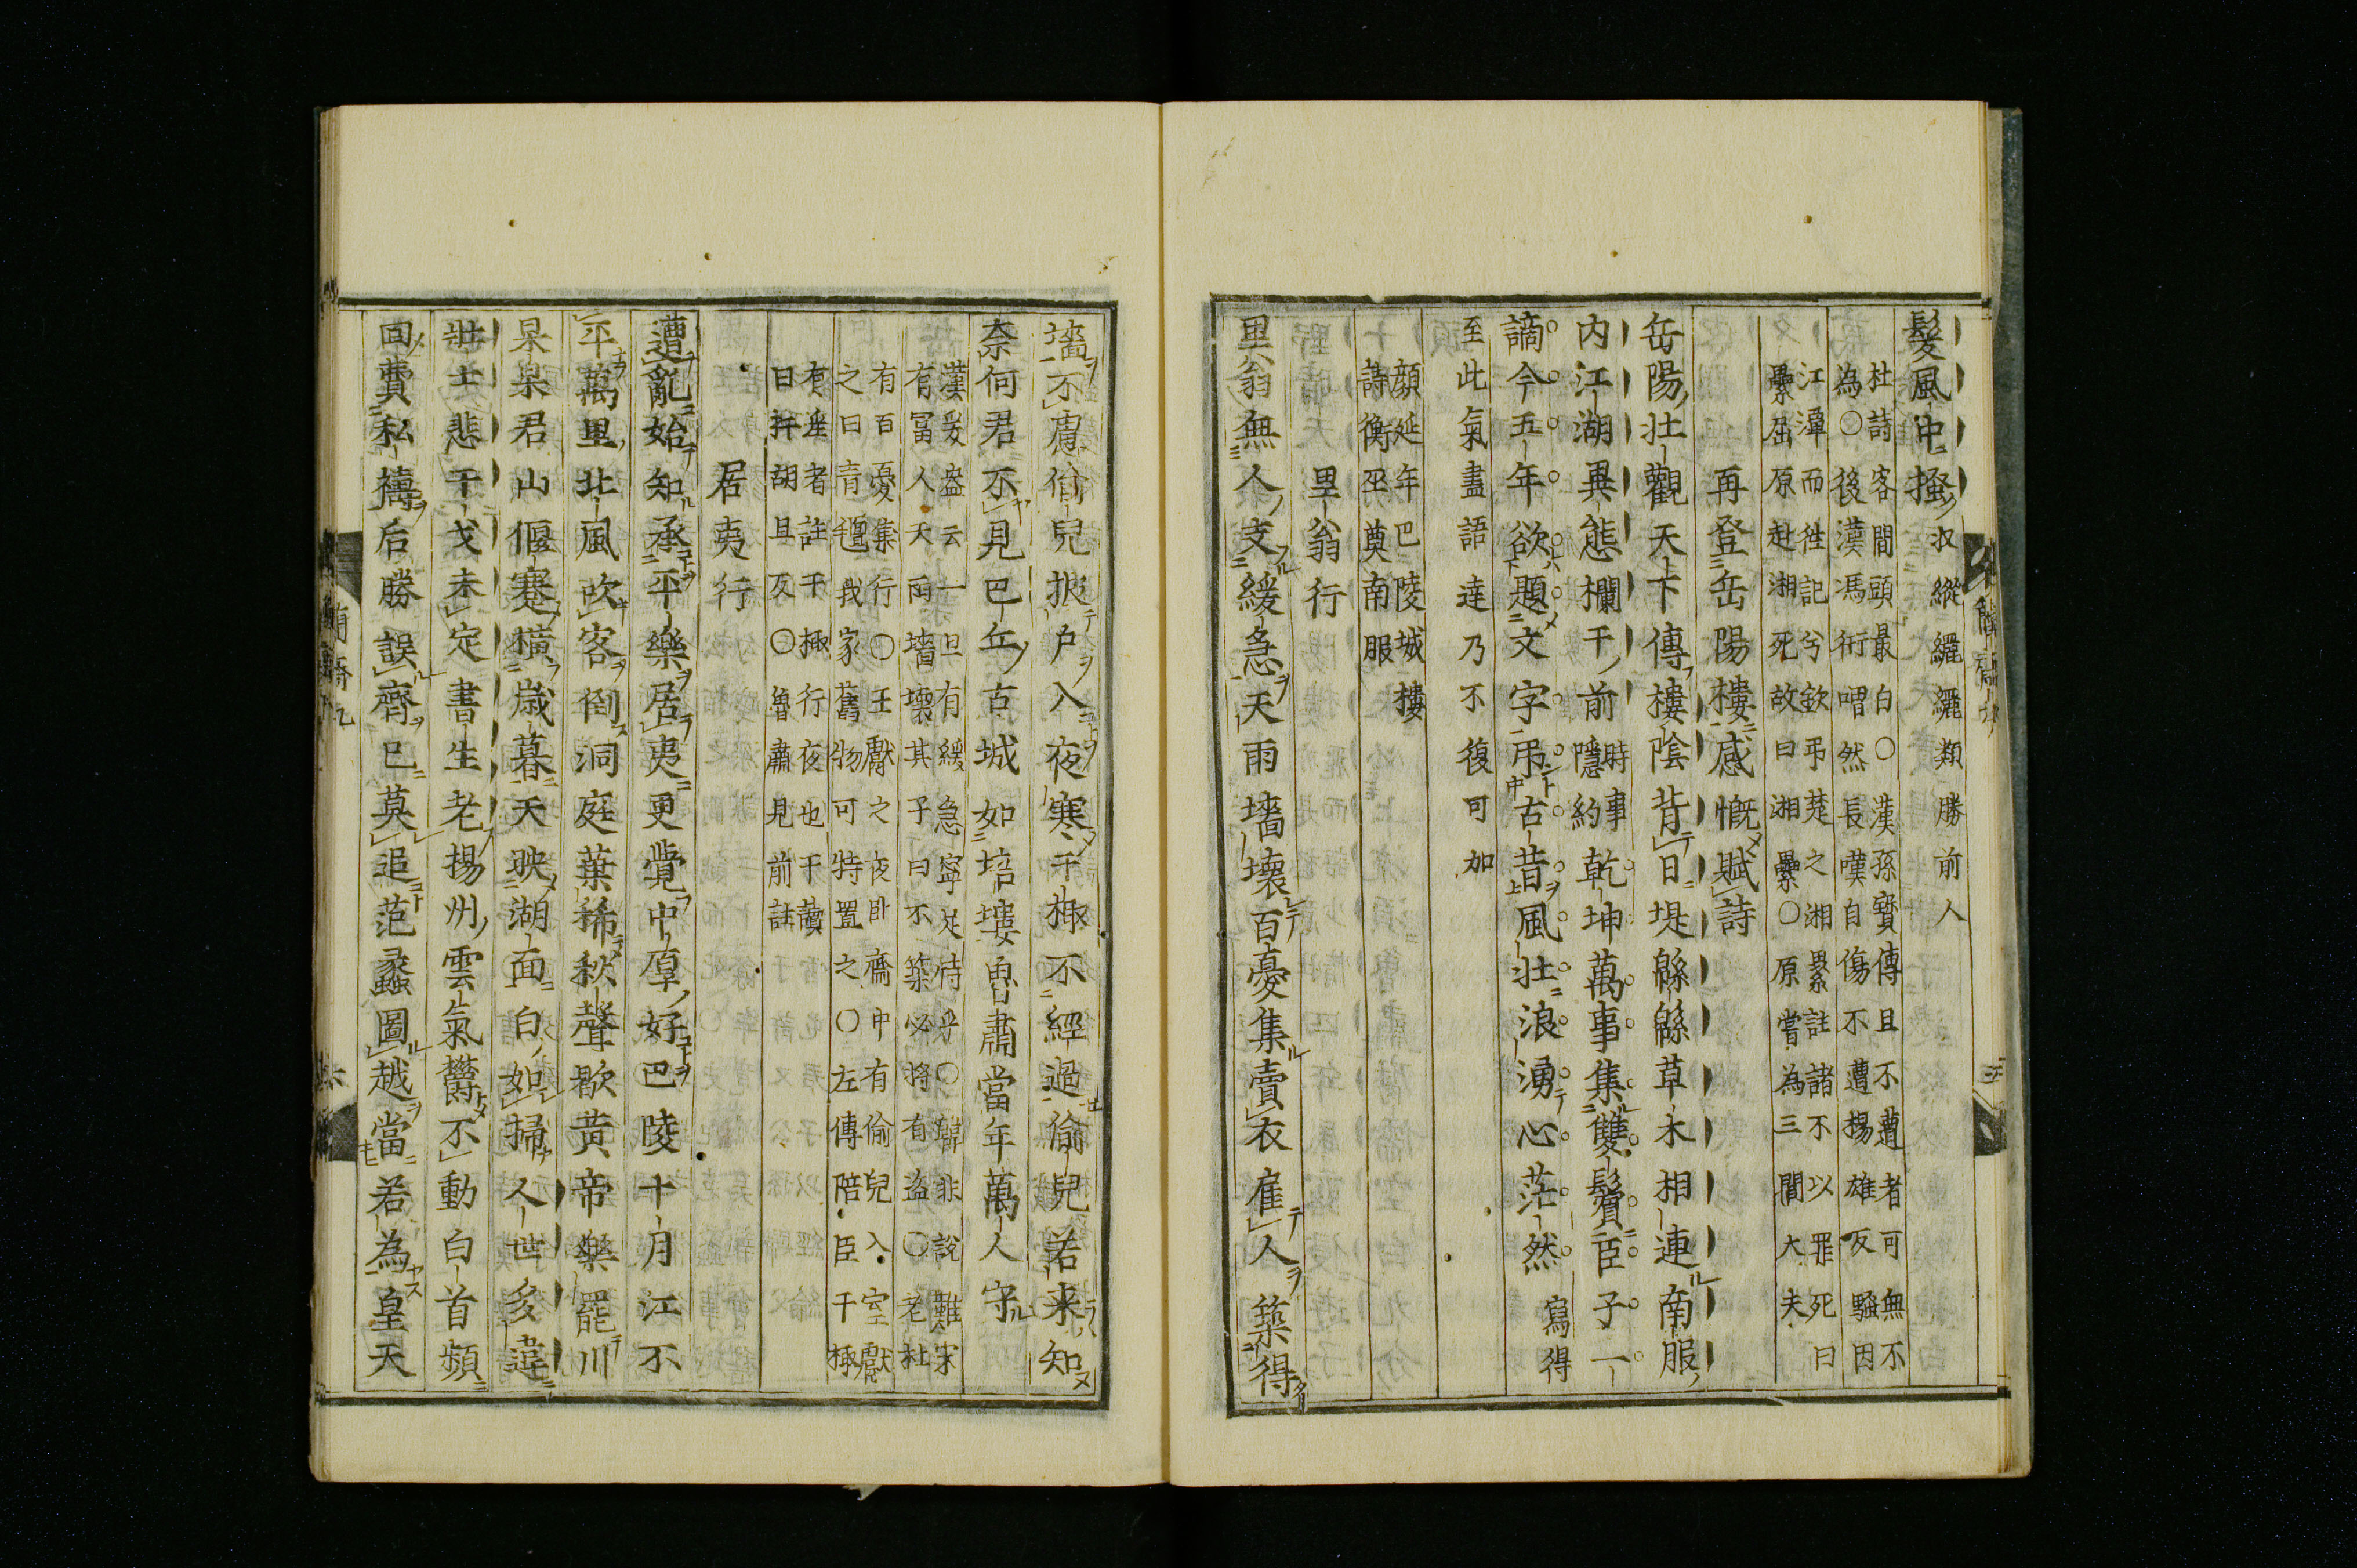 髮風中搔収縱纚纚類勝前人
杜詩客間頭最白〇漢孫寶傳且不遭者可無不
為〇後漢馮衍喟然長嘆自傷不遭揚雄反騷因
江潭而徃記兮欽弔楚之湘纍註諸不以罪死曰
纍屈原赴湘死故曰湘纍〇原嘗為三閭大夫
再登岳陽樓感慨賦詩
岳陽壮觀天下傳樓陰背日堤緜緜草木相連南服
内江湖異態欄干前時事隱約乾坤萬事集雙鬢臣子一
謫今五年欲題文字弔古昔風壮浪湧心茫然寫得
至此氣盡語達乃不復可加
顔延年巴陵城樓
詩衡巫奠南服
里翁行
里翁無人支緩急天雨墻壊百憂集賣衣雇人築得
墻不慮偷兒披户入夜寒干掫不經過偷兒若来知
奈何君不見巴丘古城如培塿魯肅當年萬人守
漢爰盎云一旦有緩急寧足恃乎〇韓非說難宋
有冨人天雨墻壊其子曰不築必将有盗〇老杜
有百憂集行〇王獻之夜卧齋中有偷兒入室獻
之曰青氊我家舊物可特置之〇左傳陪臣干掫
有滛者註干掫行夜也干讀
曰扞胡且反〇魯肅見前註
居夷行
遭亂始知承平樂居夷更覺中原好巴陵十月江不
平萬里北風吹客倒洞庭葉稀秋聲歇黄帝樂罷川
杲杲君山偃蹇横歳暮天映湖面白如掃人世多違
壮士悲干戈未定書生老揚州雲氣欝不動白首頻
回費私禱后勝誤齊已莫追范蠡圖越當若為皇天